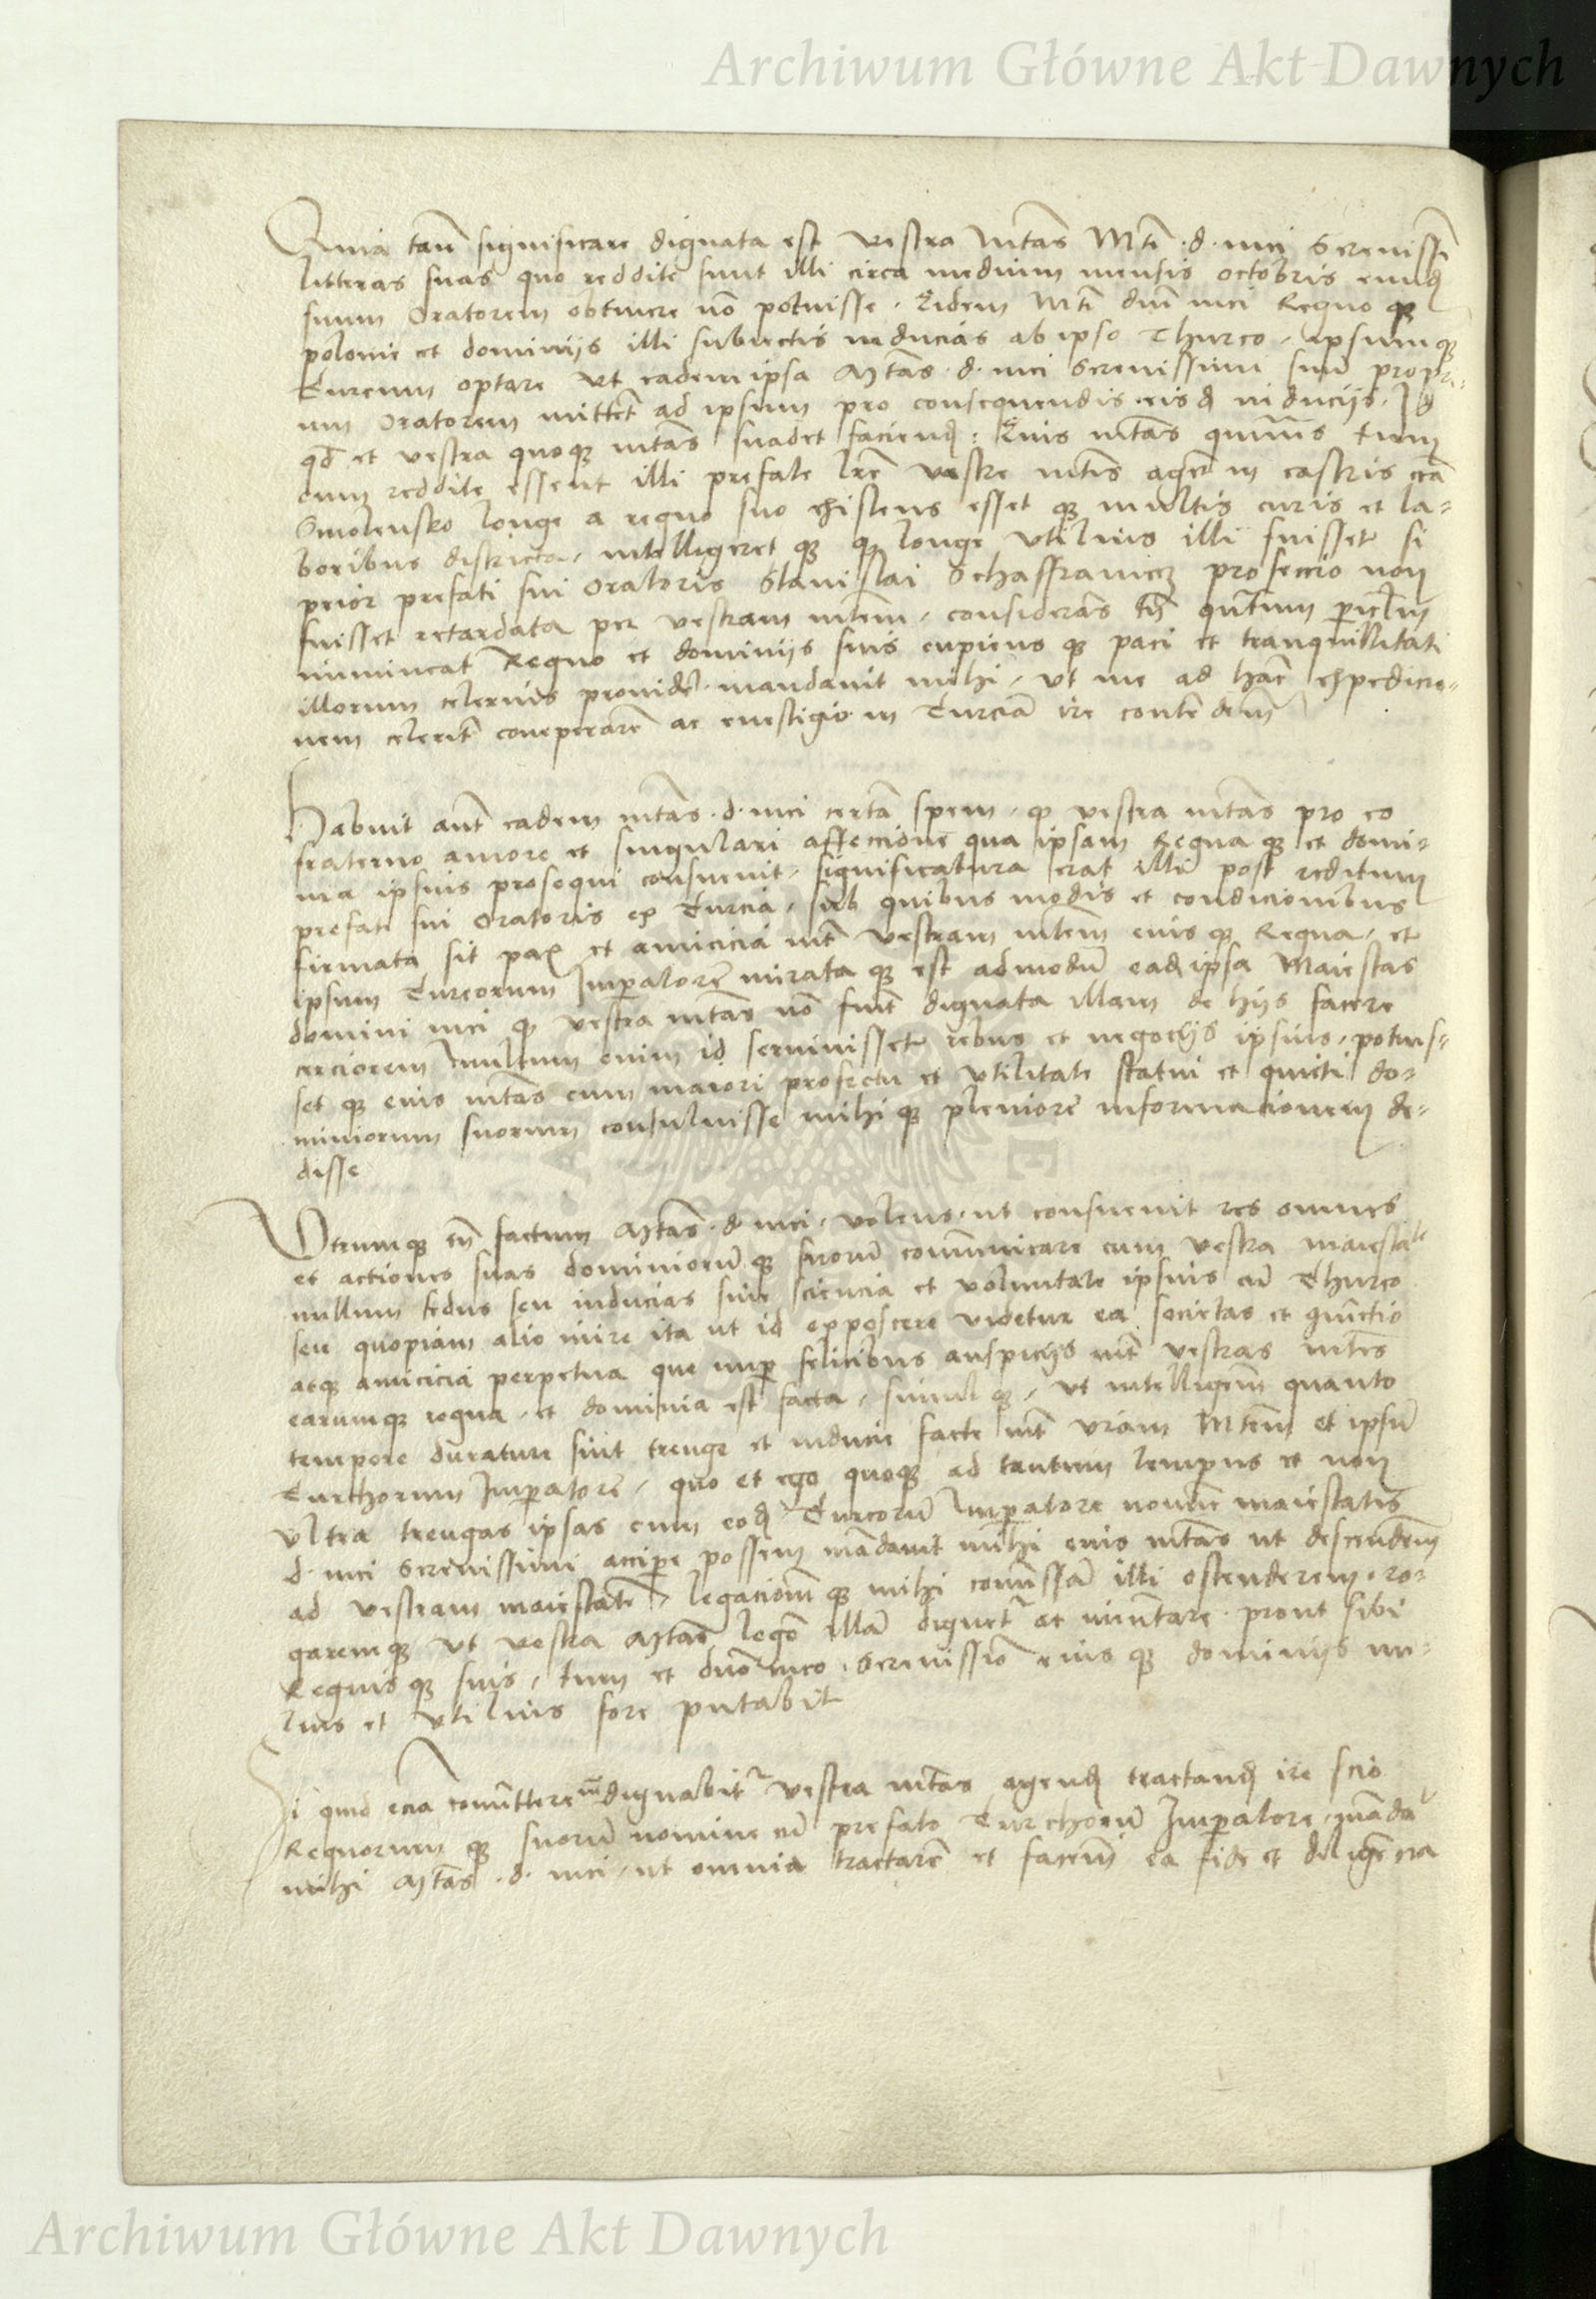 Archiwum Główne Akt Dawnych
Quia tam̄ significare dignata est vestra mtas Mti d. mei Serenissi
litteras suas quo reddite sunt illi circa medium mensis octobris eund
suum Oratorem obtinere nō potuisse. Eidem Mti dni mei Regno q
polonie et dominijs illi subiectis inducias ab ipso Thurco, ipsumq
Turcum optare ut eadem ipsa Mtas d. mei Serenissimi suū propri-
um Oratorem mittet ad ipsum pro consequendis eisd inducijs. Id
qd et vestra quoq mtas suadet faciend: Eius mtas quāuis tum
dum reddite essent illi prefate lre vestre mtis aget in castris circa
Smolensko longe a regno suo existens esset q multis curis et la-
boribus districta, intelligeret q q longe utilius illi fuisset si
prior prefati sui Oratoris Stanislai Schaffraniecz profeccio non
fuisset retardata per vestram mtem, considerans tn quntum periclm
immineat Regno et dominijs suis cupiens q paci et tranquillitati
illorum celerius provide mandavit mihi, ut me ad hanc expedicio-
nem celerit compararē ac evestigio in Turciā ire contendem
Habuit aut eadem mtas d. mei certā spem, q vestra mtas pro eo
fraterno amore et singulari affeccione qua ipsam Regna q et domi-
nia ipsius prosequi consuevit, significatura erat illi post reditum
prefati sui Oratoris ex Turcia, sub quibus modis et condicionibus
firmata sit pax et amicicia int vestram mtem eius q Regna, et
ipsum Turcorum Imperatorē mirata q est admodū ead ipsa Maiestas
domini mei q vestra mtas nō fuit dignata illam de hijs facere
cerciorem multum enim id servivisset rebus et negocijs ipsius, potuis-
set q eius mtas cum maiori profectu et utilitate statui et quieti do-
miniorum suorum consuluisse mihi q pleniorē informacionem de-
disse
Utrumq tn factum Mtas d. mei, volens, ut consuevit res omnes
et actiones suas dominiorū q suorū communicare cum vestra maiestate
nullum fedus seu inducias sine sciencia et voluntate ipsius cū Thurco
seu quopiam alio inire ita ut id exposcere videtur ea societas et coniunctio
atq amicicia perpetua que nup felicibus auspicijs int vestras mtes
earumq regna, et dominia est facta, simul q, ut intelligem quanto
tempore durature sint treuge et inducie facte int vram Mtem et ipsū
Turchorum Imperatorē, quo et ego quoq ad tantum tempus et non
ultra treugas ipsas cum eod Turcorū Imperatore nomine maiestatis
d. mei Serenissimi accipe possem mādavit mihi eius mtas ut descendem
ad vestram maiestatē, legacionem q mihi commissā illi ostenderem, ro-
garemq ut vestra Mtas legē illā dignet ac immutare prout sibi
Regnis q suis, tum et dno meo Serenissimo eius q dominijs me-
lius et utilius fore putabit
Si quid ecia committere dignabit vestra mtas agend tractand ire scio
Regnorum q suorū nomine cū prefato Turchorū Imperatore, māda
mihi Mtas d. mei, ut omnia tractarē et facem ea fide et diligēcia
Archiwum Główne Akt Dawnych